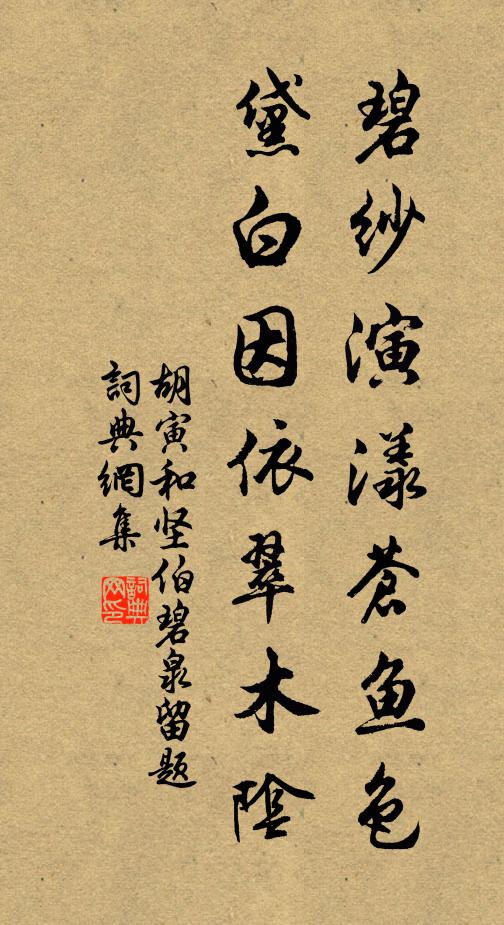 碧纱演漾苍鱼色
黛白因依翠木陰
胡寅和坚伯碧泉留题
詞典網集
詞典网印